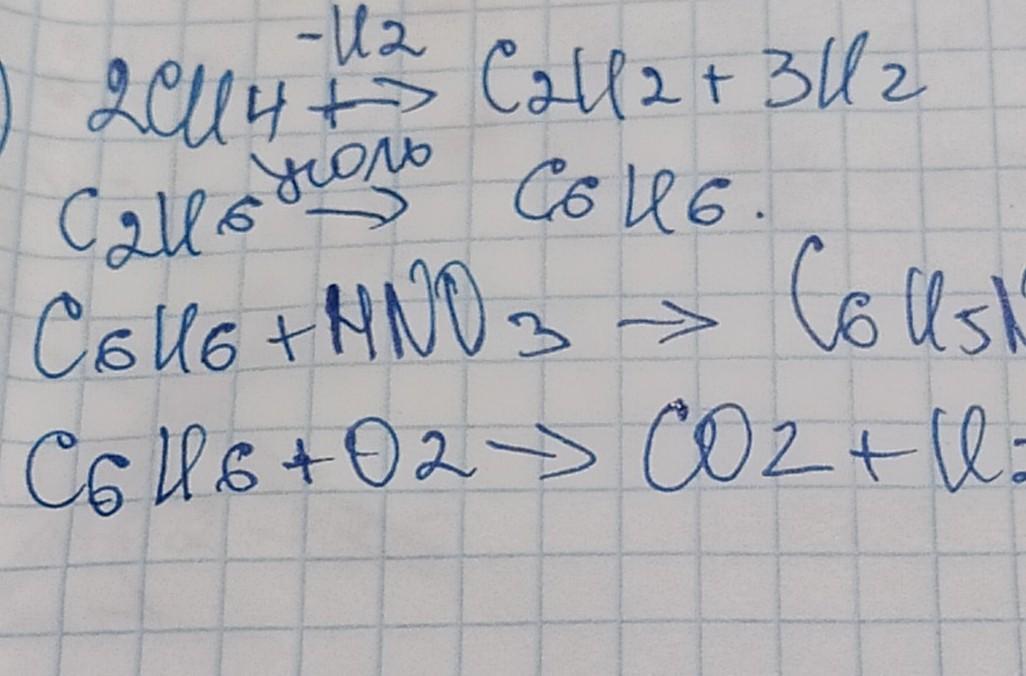 -H2
) 2CH4 +→ C2H2 + 3H2
C2H6 уголь → C6H6.
C6H6 + HNO3 → C6H5N
C6H6 + O2 → CO2 + H2